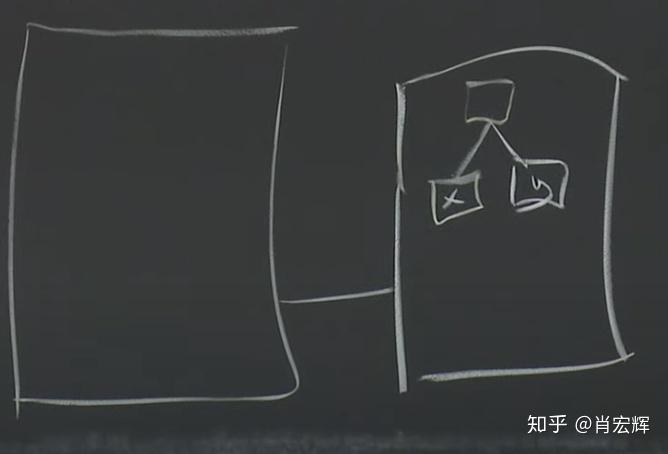 x y
知乎 @肖宏辉